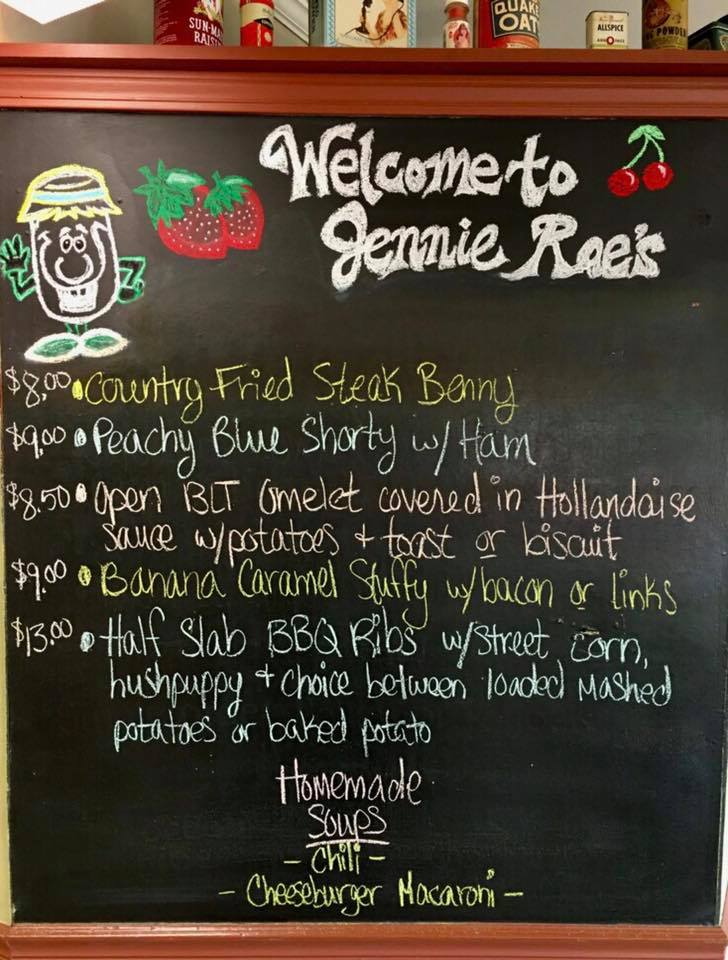 SUN-MA
RAIS
QUAK
OAT
ALLSPICE
POWD
Welcome to
Jennie Rae's
$8.00 • Country Fried Steak Benny
$9.00 • Peachy Blue Shorty w/ Ham
$8.50 • Open BLT Omelet covered in Hollandaise
sauce w/potatoes + toast or biscuit
$9.00 • Banana Caramel Stuffy w/bacon or links
$13.00 • Half Slab BBQ Ribs w/street corn,
hushpuppy + choice between loaded mashed
potatoes or baked potato
Homemade
Soups
- Chili -
- Cheeseburger Macaroni -